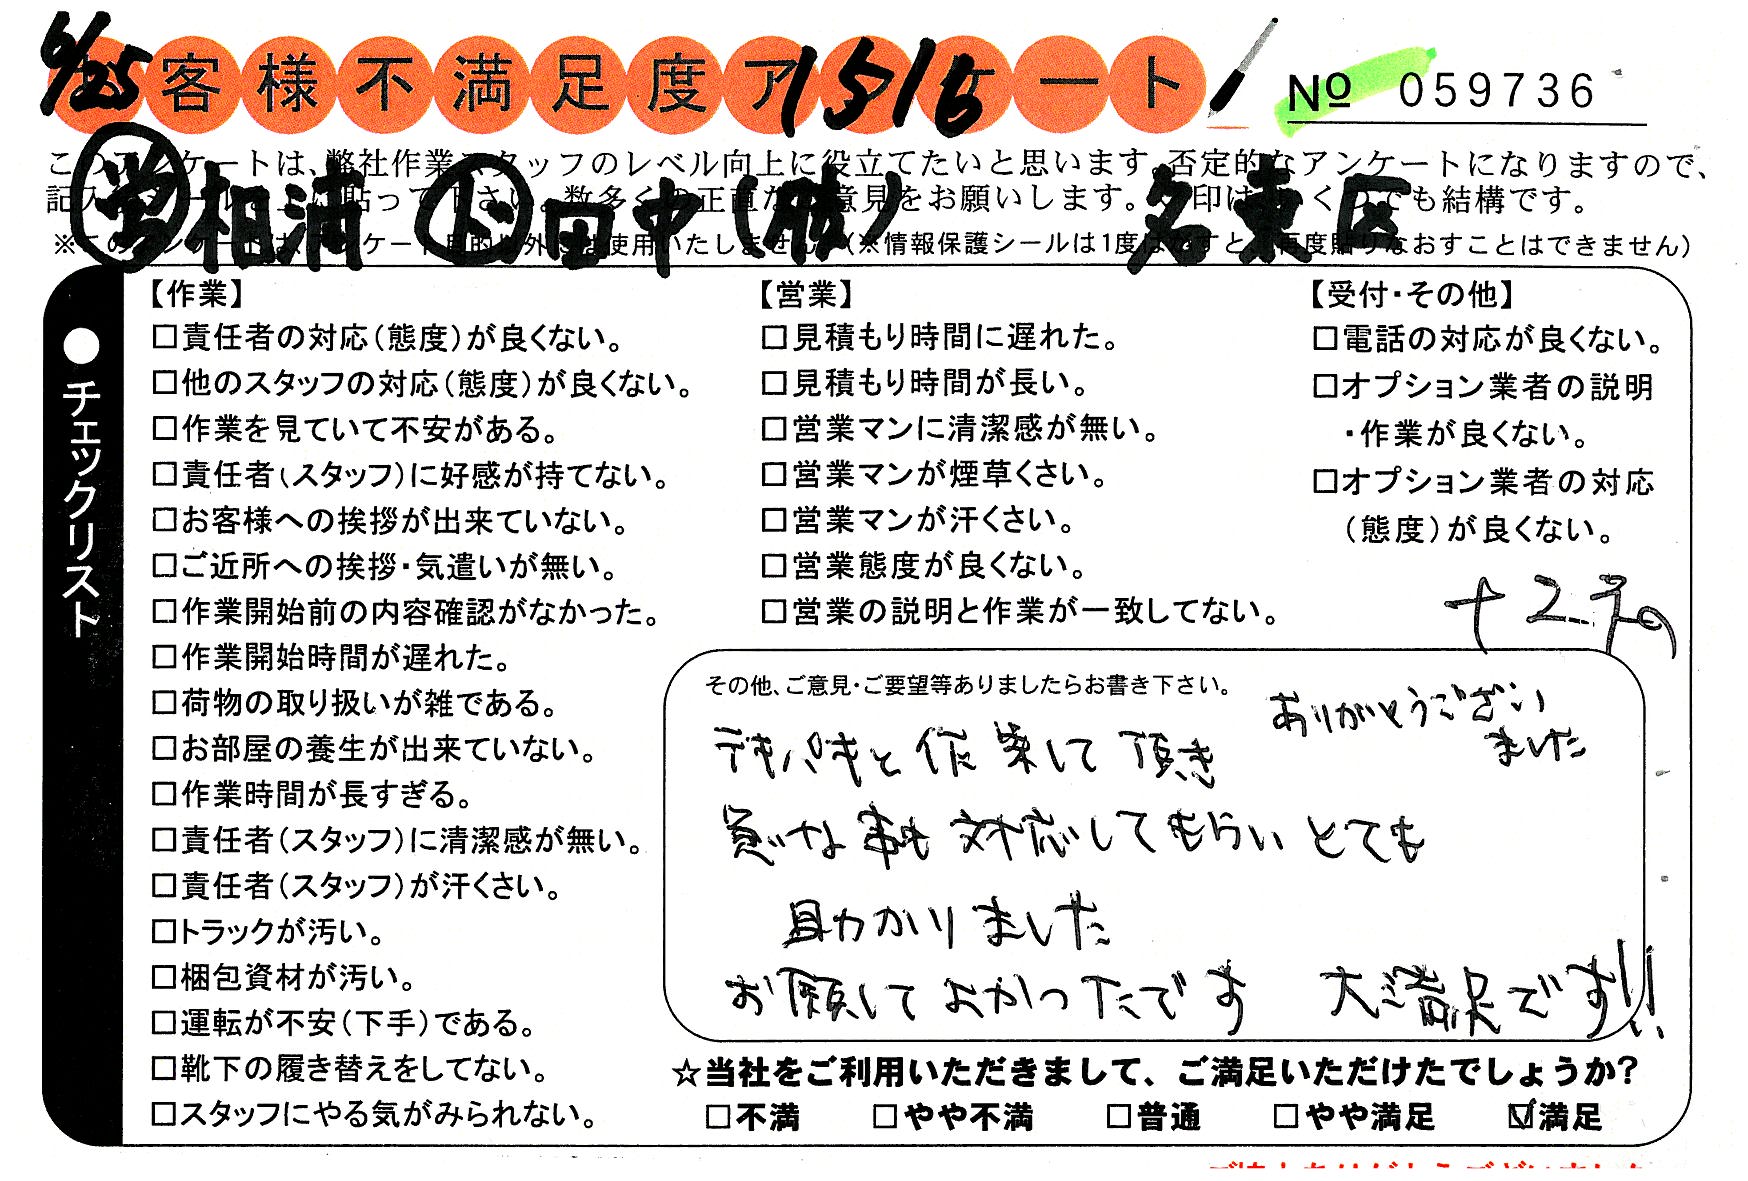 6/25 お客様不満足度アンケート 1516 № 059736
このアンケートは、弊社作業スタッフのレベル向上に役立てたいと思います。否定的なアンケートになりますので、
数多くの正直なご意見をお願いします。
㊗相浦 ㋣田中(勝) 名東区
(※情報保護シールは1度はがすと、再度貼りなおすことはできません)
●チェックリスト
【作業】
□責任者の対応(態度)が良くない。
□他のスタッフの対応(態度)が良くない。
□作業を見ていて不安がある。
□責任者(スタッフ)に好感が持てない。
□お客様への挨拶が出来ていない。
□ご近所への挨拶・気遣いが無い。
□作業開始前の内容確認がなかった。
□作業開始時間が遅れた。
□荷物の取り扱いが雑である。
□お部屋の養生が出来ていない。
□作業時間が長すぎる。
□責任者(スタッフ)に清潔感が無い。
□責任者(スタッフ)が汗くさい。
□トラックが汚い。
□梱包資材が汚い。
□運転が不安(下手)である。
□靴下の履き替えをしてない。
□スタッフにやる気がみられない。
【営業】
□見積もり時間に遅れた。
□見積もり時間が長い。
□営業マンに清潔感が無い。
□営業マンが煙草くさい。
□営業マンが汗くさい。
□営業態度が良くない。
□営業の説明と作業が一致してない。
【受付・その他】
□電話の対応が良くない。
□オプション業者の説明
・作業が良くない。
□オプション業者の対応
(態度)が良くない。
その他、ご意見・ご要望等ありましたらお書き下さい。
テキパキと作業して頂き
急な事も対応してもらいとても
助かりました
お願いしてよかったです 大満足です!!
ありがとうござい
ました
☆当社をご利用いただきまして、ご満足いただけたでしょうか?
□不満 □やや不満 □普通 □やや満足 ☑満足